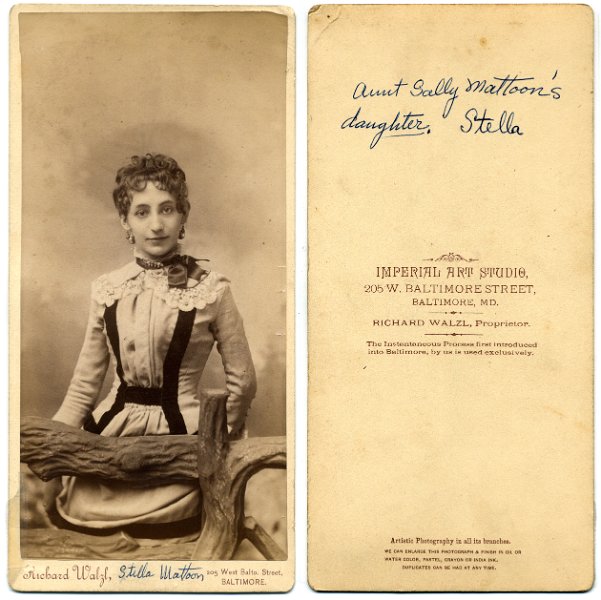 Richard Walzl, Stella Mattoon 205 West Balto. Street,
BALTIMORE.
Aunt Sally Mattoon's
daughter. Stella
IMPERIAL ART STUDIO,
205 W. BALTIMORE STREET,
BALTIMORE, MD.
RICHARD WALZL, Proprietor.
The Instantaneous Process first introduced
into Baltimore, by us is used exclusively.
Artistic Photography in all its branches.
WE CAN ENLARGE THIS PHOTOGRAPH & FINISH IN OIL OR
WATER COLOR, PASTEL, CRAYON OR INDIA INK.
DUPLICATES CAN BE HAD AT ANY TIME.